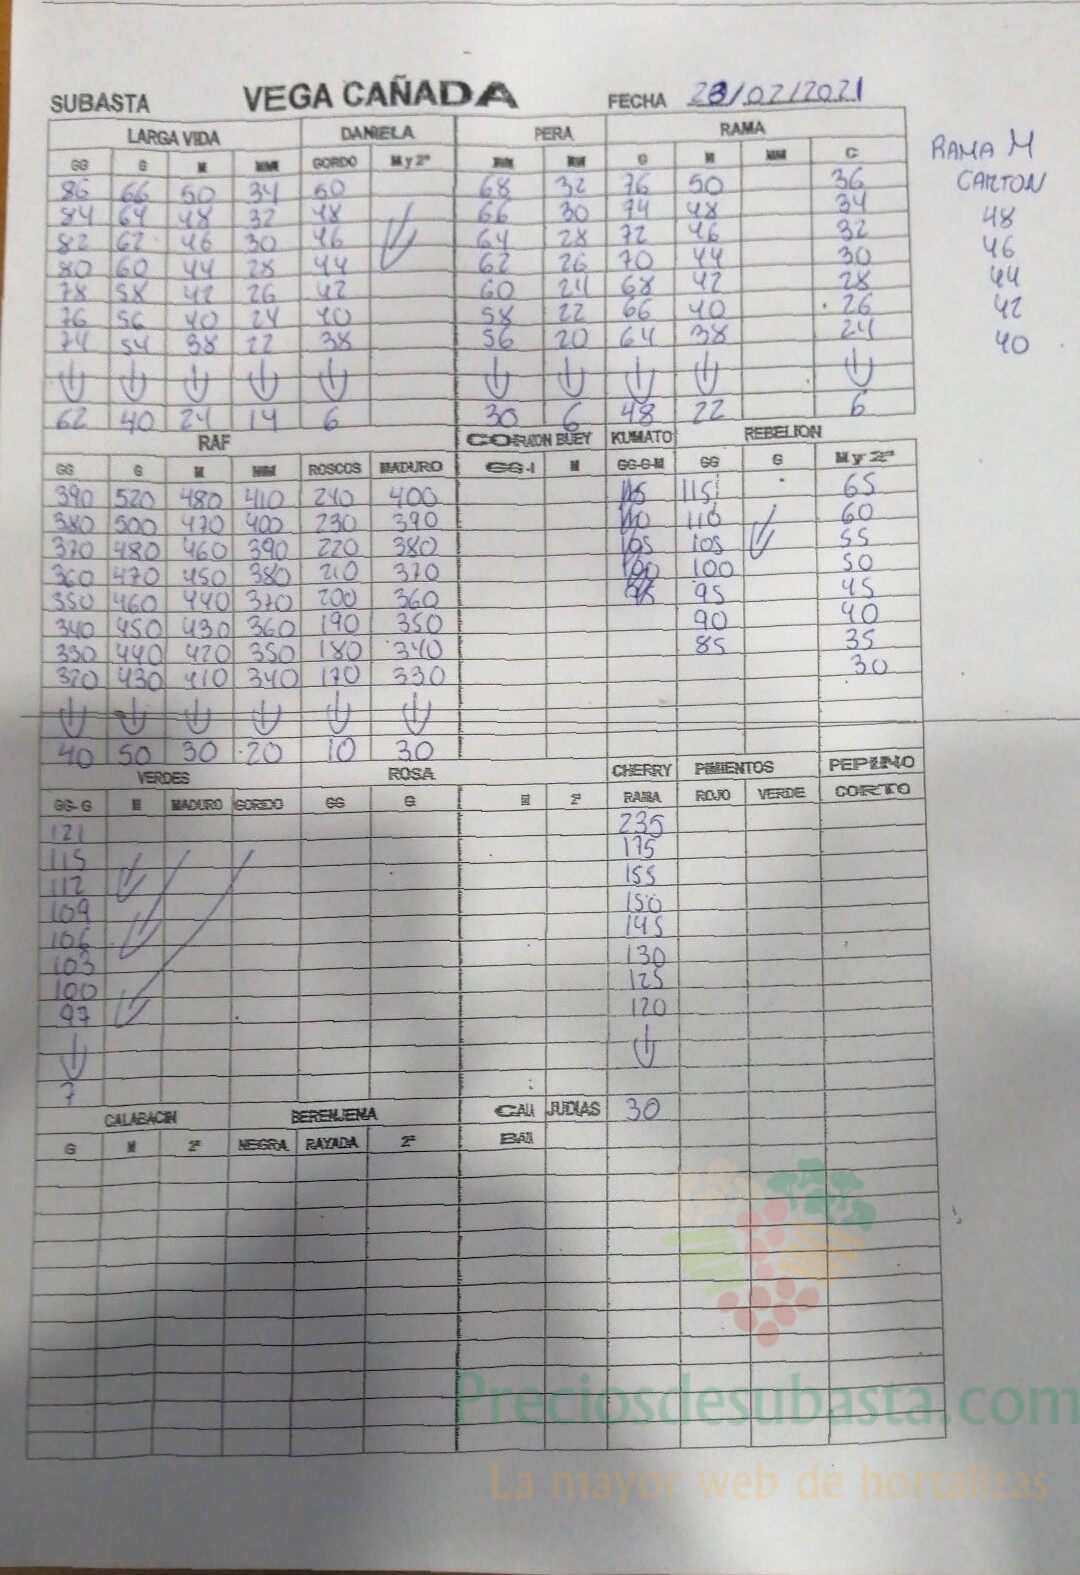 SUBASTA VEGA CAÑADA FECHA 23/02/2021
LARGA VIDA DANIELA PERA RAMA
GG G M MM GORDO M y 2ª MM G M MM C
86 66 50 34 50 68 32 76 50 36
84 64 48 32 48 66 30 74 48 34
82 62 46 30 46 64 28 72 46 32
80 60 44 28 44 62 26 70 44 30
78 58 42 26 42 60 24 68 42 28
76 56 40 24 40 58 22 66 40 26
74 54 38 22 38 56 20 64 38 24
62 40 24 14 6 30 6 48 22 6
RAMA M
CARTON
48
46
44
42
40
RAF CORAZON BUEY KUMATO REBELION
GG G M MM ROSCOS MADURO GG-I M GG-G-M GG G M y 2ª
390 520 480 410 240 400 115 115 65
380 500 470 400 230 390 110 110 60
370 480 460 390 220 380 105 105 55
360 470 450 380 210 370 100 100 50
350 460 440 370 200 360 95 95 45
340 450 430 360 190 350 90 40
330 440 420 350 180 340 85 35
320 430 410 340 170 330 30
40 50 30 20 10 30
VERDES ROSA CHERRY PIMIENTOS PEPINO
GG-G M MADURO GORDO GG G M 2ª RAMA ROJO VERDE CORTO
121 235
115 175
112 155
109 150
106 145
103 130
100 125
97 120
7
CALABACIN BERENJENA JUDIAS 30
G M 2ª NEGRA RAYADA 2ª
Preciosdesubasta.com
La mayor web de hortalizas